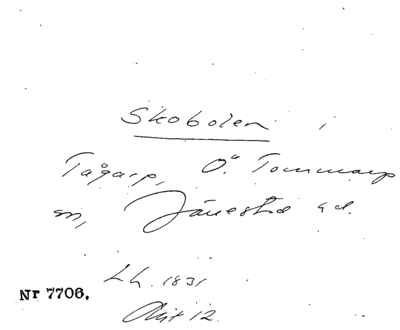 Skobolen i
Tågarp, Ö. Tommarp
sn, Järrestad
Nr 7706. Lh. 1831
Akt 12.